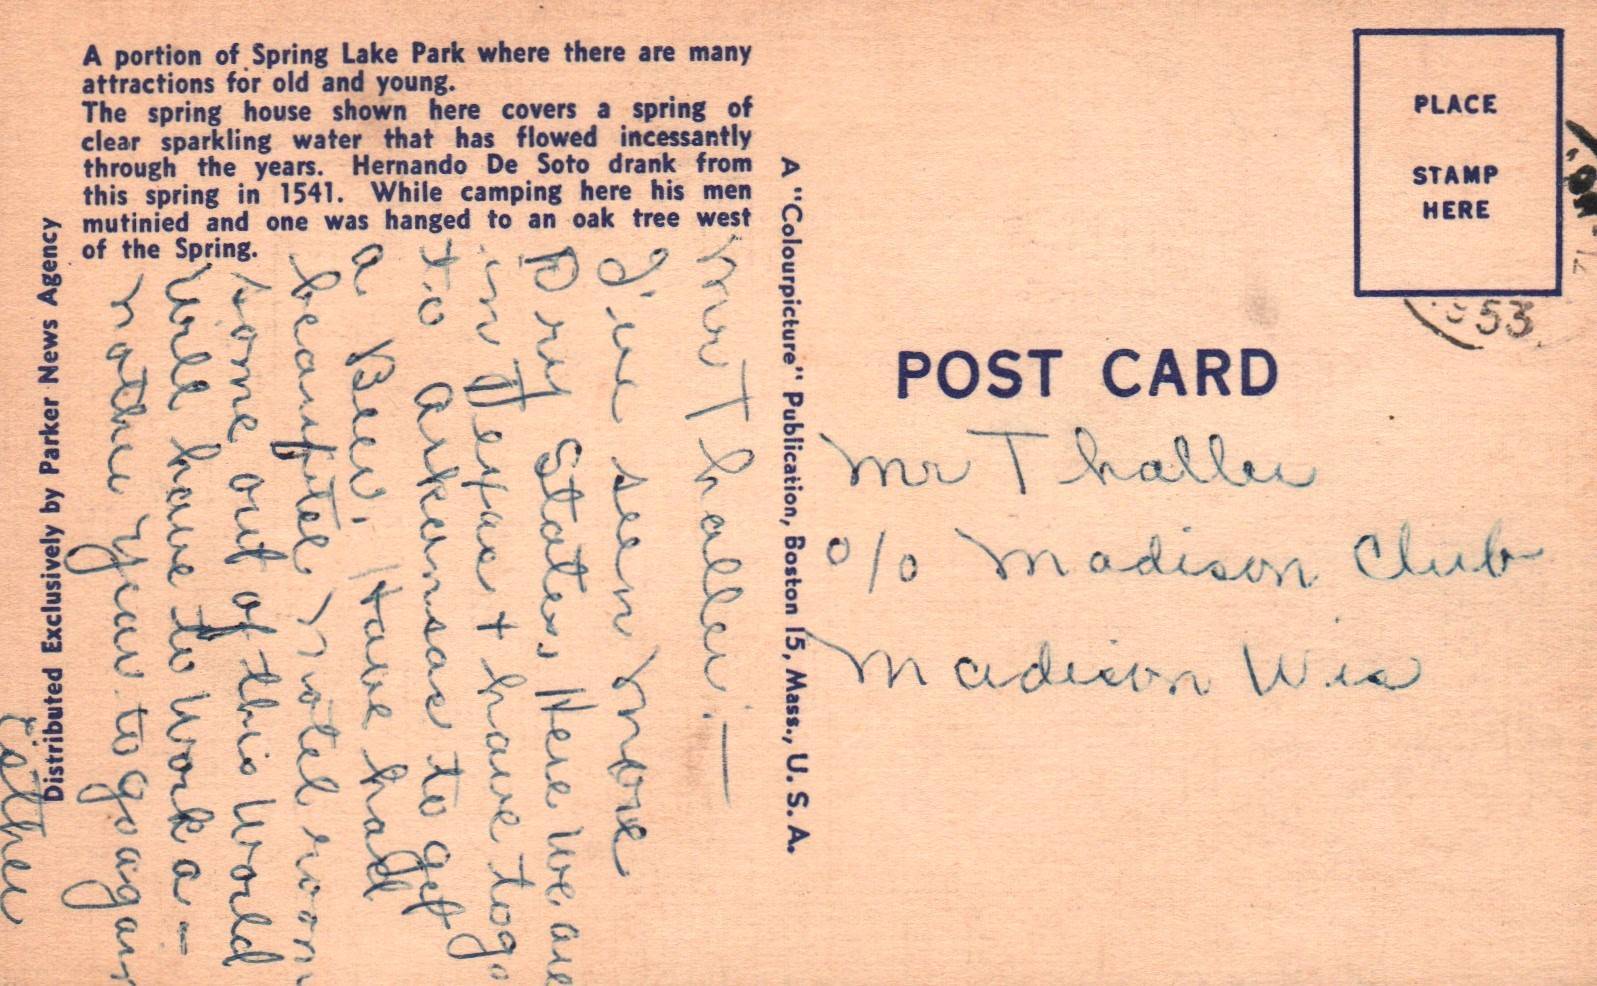 A portion of Spring Lake Park where there are many
attractions for old and young.
The spring house shown here covers a spring of
clear sparkling water that has flowed incessantly
through the years. Hernando De Soto drank from
this spring in 1541. While camping here his men
mutinied and one was hanged to an oak tree west
of the Spring.
Distributed Exclusively by Parker News Agency
A "Colourpicture" Publication, Boston 15, Mass., U. S. A.
PLACE
STAMP
HERE
POST CARD
953
Mr Thaller
c/o Madison Club
Madison Wis
Mr Thaller. —
I've seen more
Dry States, Here We are
in Texas + have to go
to Arkansas to get
a Beer. Have had
beautiful Motel room
some out of this World
Will have to Work a-
nother year to go again
Esther